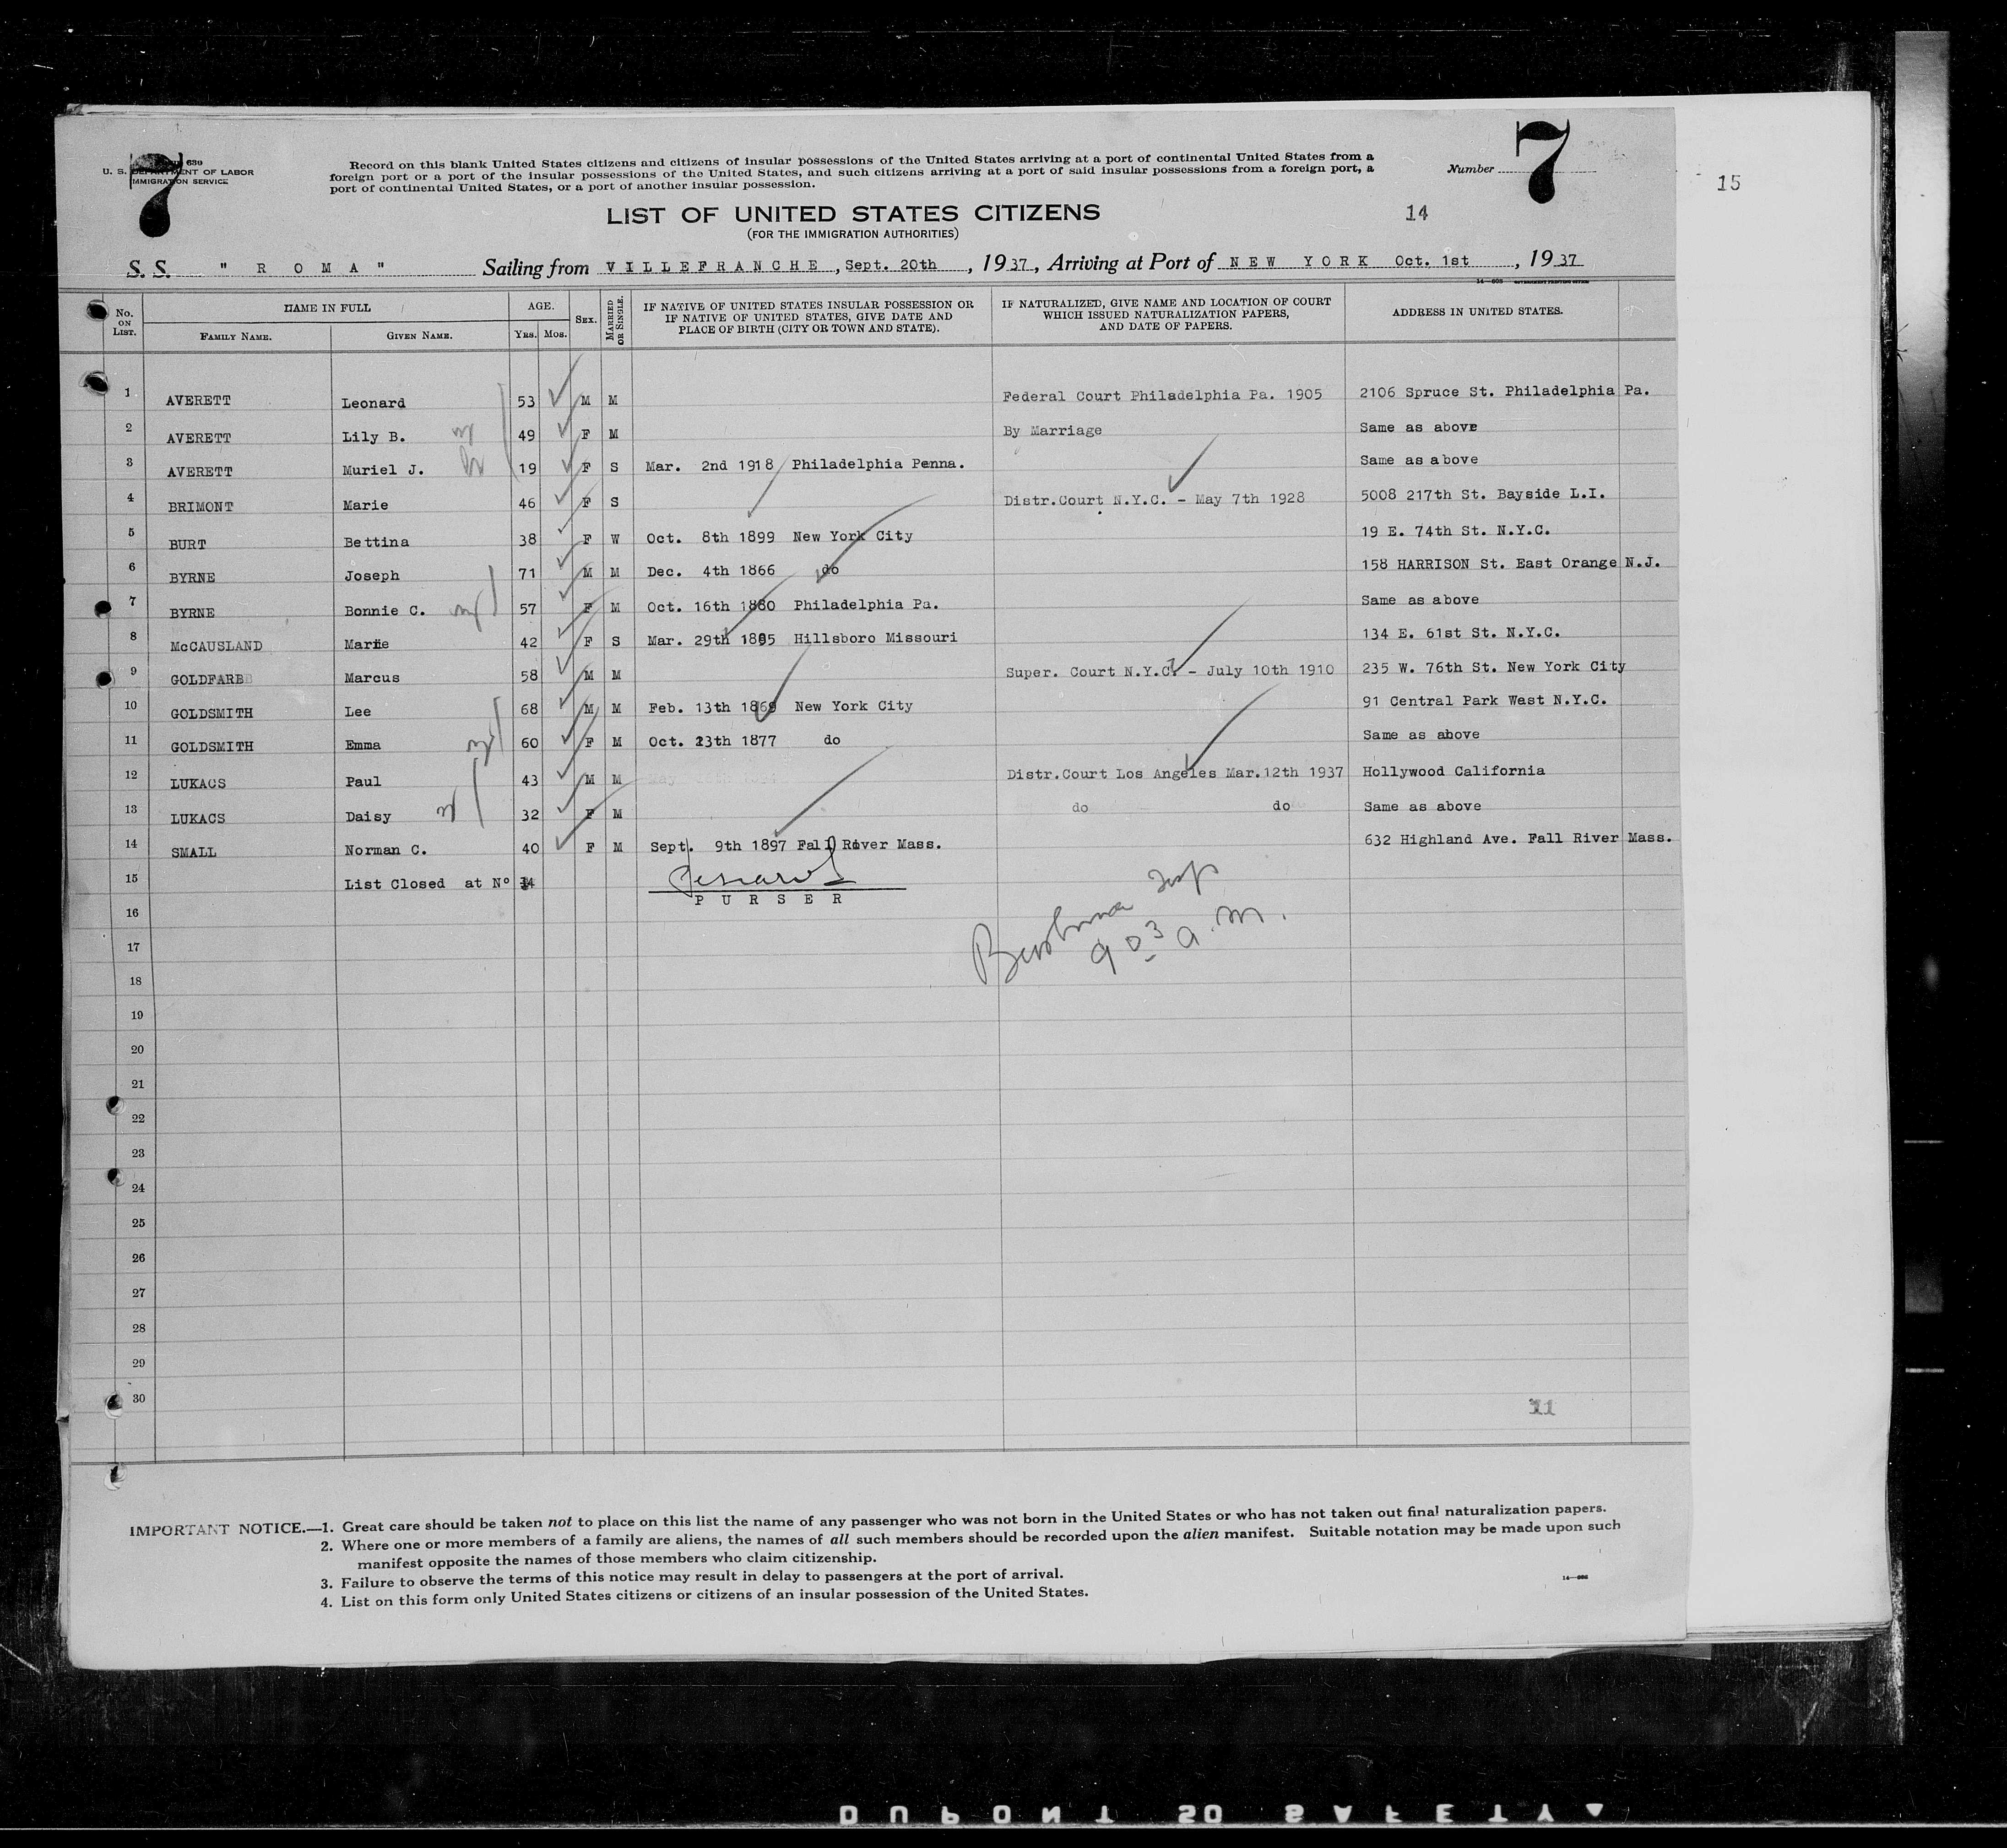 7
U. S. DEPARTMENT OF LABOR
IMMIGRATION SERVICE
Record on this blank United States citizens and citizens of insular possessions of the United States arriving at a port of continental United States from a
foreign port or a port of the insular possessions of the United States, and such citizens arriving at a port of said insular possessions from a foreign port, a
port of continental United States, or a port of another insular possession.
Number 7
15
LIST OF UNITED STATES CITIZENS
14
(FOR THE IMMIGRATION AUTHORITIES)
S. S. " R O M A " Sailing from VILLEFRANCHE, Sept. 20th, 1937, Arriving at Port of NEW YORK Oct. 1st, 1937
No. ON LIST. NAME IN FULL FAMILY NAME. GIVEN NAME. AGE. YRS. MOS. SEX. MARRIED OR SINGLE. IF NATIVE OF UNITED STATES INSULAR POSSESSION OR IF NATIVE OF UNITED STATES, GIVE DATE AND PLACE OF BIRTH (CITY OR TOWN AND STATE). IF NATURALIZED, GIVE NAME AND LOCATION OF COURT WHICH ISSUED NATURALIZATION PAPERS, AND DATE OF PAPERS. ADDRESS IN UNITED STATES.
1 AVERETT Leonard 53 M M Federal Court Philadelphia Pa. 1905 2106 Spruce St. Philadelphia Pa.
2 AVERETT Lily B. 49 F M By Marriage Same as above
3 AVERETT Muriel J. 19 F S Mar. 2nd 1918 Philadelphia Penna. Same as above
4 BRIMONT Marie 46 F S Distr.Court N.Y.C. - May 7th 1928 5008 217th St. Bayside L.I.
5 BURT Bettina 38 F W Oct. 8th 1899 New York City 19 E. 74th St. N.Y.C.
6 BYRNE Joseph 71 M M Dec. 4th 1866 do 158 HARRISON St. East Orange N.J.
7 BYRNE Bonnie C. 57 F M Oct. 16th 1880 Philadelphia Pa. Same as above
8 McCAUSLAND Marie 42 F S Mar. 29th 1895 Hillsboro Missouri 134 E. 61st St. N.Y.C.
9 GOLDFARB Marcus 58 M M Super. Court N.Y.C. - July 10th 1910 235 W. 76th St. New York City
10 GOLDSMITH Lee 68 M M Feb. 13th 1869 New York City 91 Central Park West N.Y.C.
11 GOLDSMITH Emma 60 F M Oct. 23th 1877 do Same as above
12 LUKACS Paul 43 M M Distr.Court Los Angeles Mar.12th 1937 Hollywood California
13 LUKACS Daisy 32 F M do do Same as above
14 SMALL Norman C. 40 F M Sept. 9th 1897 Fall River Mass. 632 Highland Ave. Fall River Mass.
15 List Closed at Nº 14
PURSER
16
9 03 a.m.
17
18
19
20
21
22
23
24
25
26
27
28
29
30
11
IMPORTANT NOTICE.—1. Great care should be taken not to place on this list the name of any passenger who was not born in the United States or who has not taken out final naturalization papers.
2. Where one or more members of a family are aliens, the names of all such members should be recorded upon the alien manifest. Suitable notation may be made upon such
manifest opposite the names of those members who claim citizenship.
3. Failure to observe the terms of this notice may result in delay to passengers at the port of arrival.
4. List on this form only United States citizens or citizens of an insular possession of the United States.
DUPONT 50 SAFETY